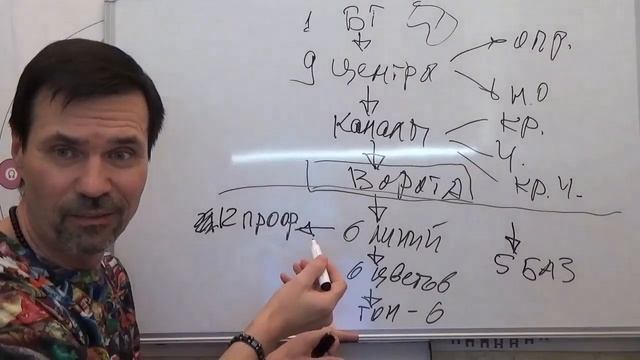 1 БГ
9 Центры
опр.
н.о
Каналы
Кр.
Ч.
Кр.Ч.
Ворота
12 проф
6 линий
6 цветов
тон - 6
5 БАЗ